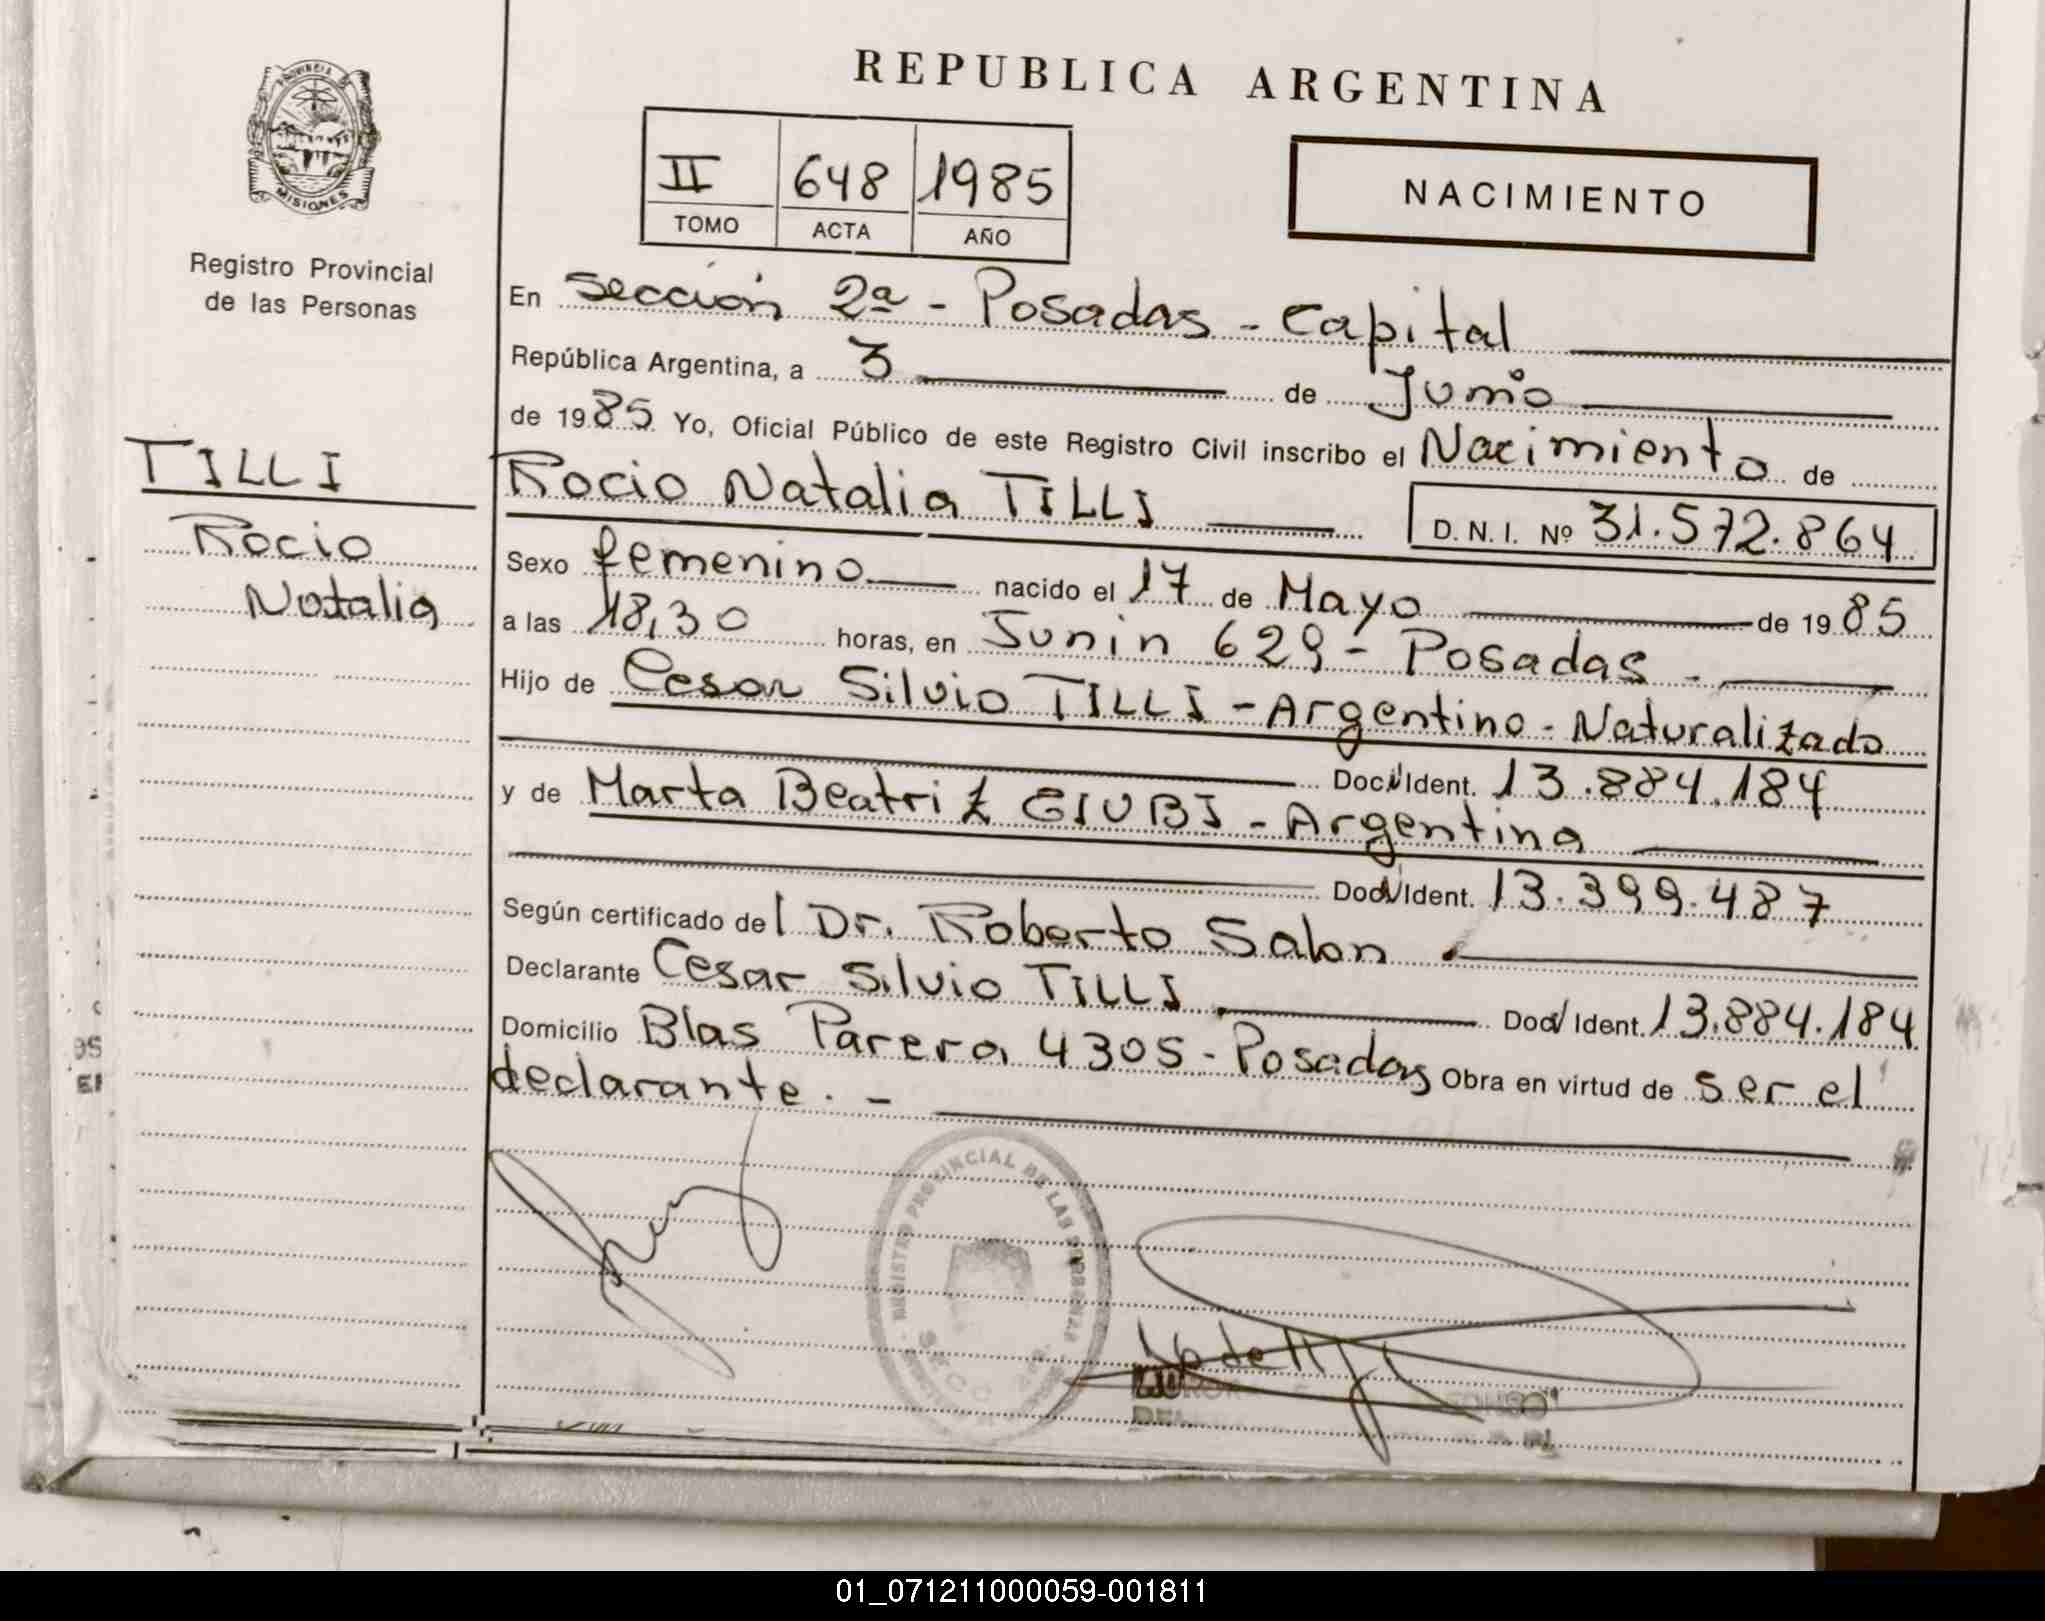 PROVINCIA DE
MISIONES
Registro Provincial
de las Personas
TILLI
Rocio
Natalia
REPUBLICA ARGENTINA
II 648 1985
TOMO ACTA AÑO
NACIMIENTO
En sección 2ª - Posadas - Capital
República Argentina, a 3 de Junio
de 1985 Yo, Oficial Público de este Registro Civil inscribo el Nacimiento de
Rocio Natalia TILLI D. N. I. Nº 31.572.864
Sexo femenino nacido el 17 de Mayo de 1985
a las 18,30 horas, en Junin 629 - Posadas -
Hijo de Cesar Silvio TILLI - Argentino - Naturalizado
Doc. Ident. 13.884.184
y de Marta Beatriz GIUBI - Argentina
Doc. Ident. 13.399.487
Según certificado del Dr. Roberto Salon
Declarante Cesar Silvio TILLI Doc. Ident. 13.884.184
Domicilio Blas Parera 4305 - Posadas Obra en virtud de ser el
declarante. -
REGISTRO PROVINCIAL DE LAS PERSONAS
01_071211000059-001811